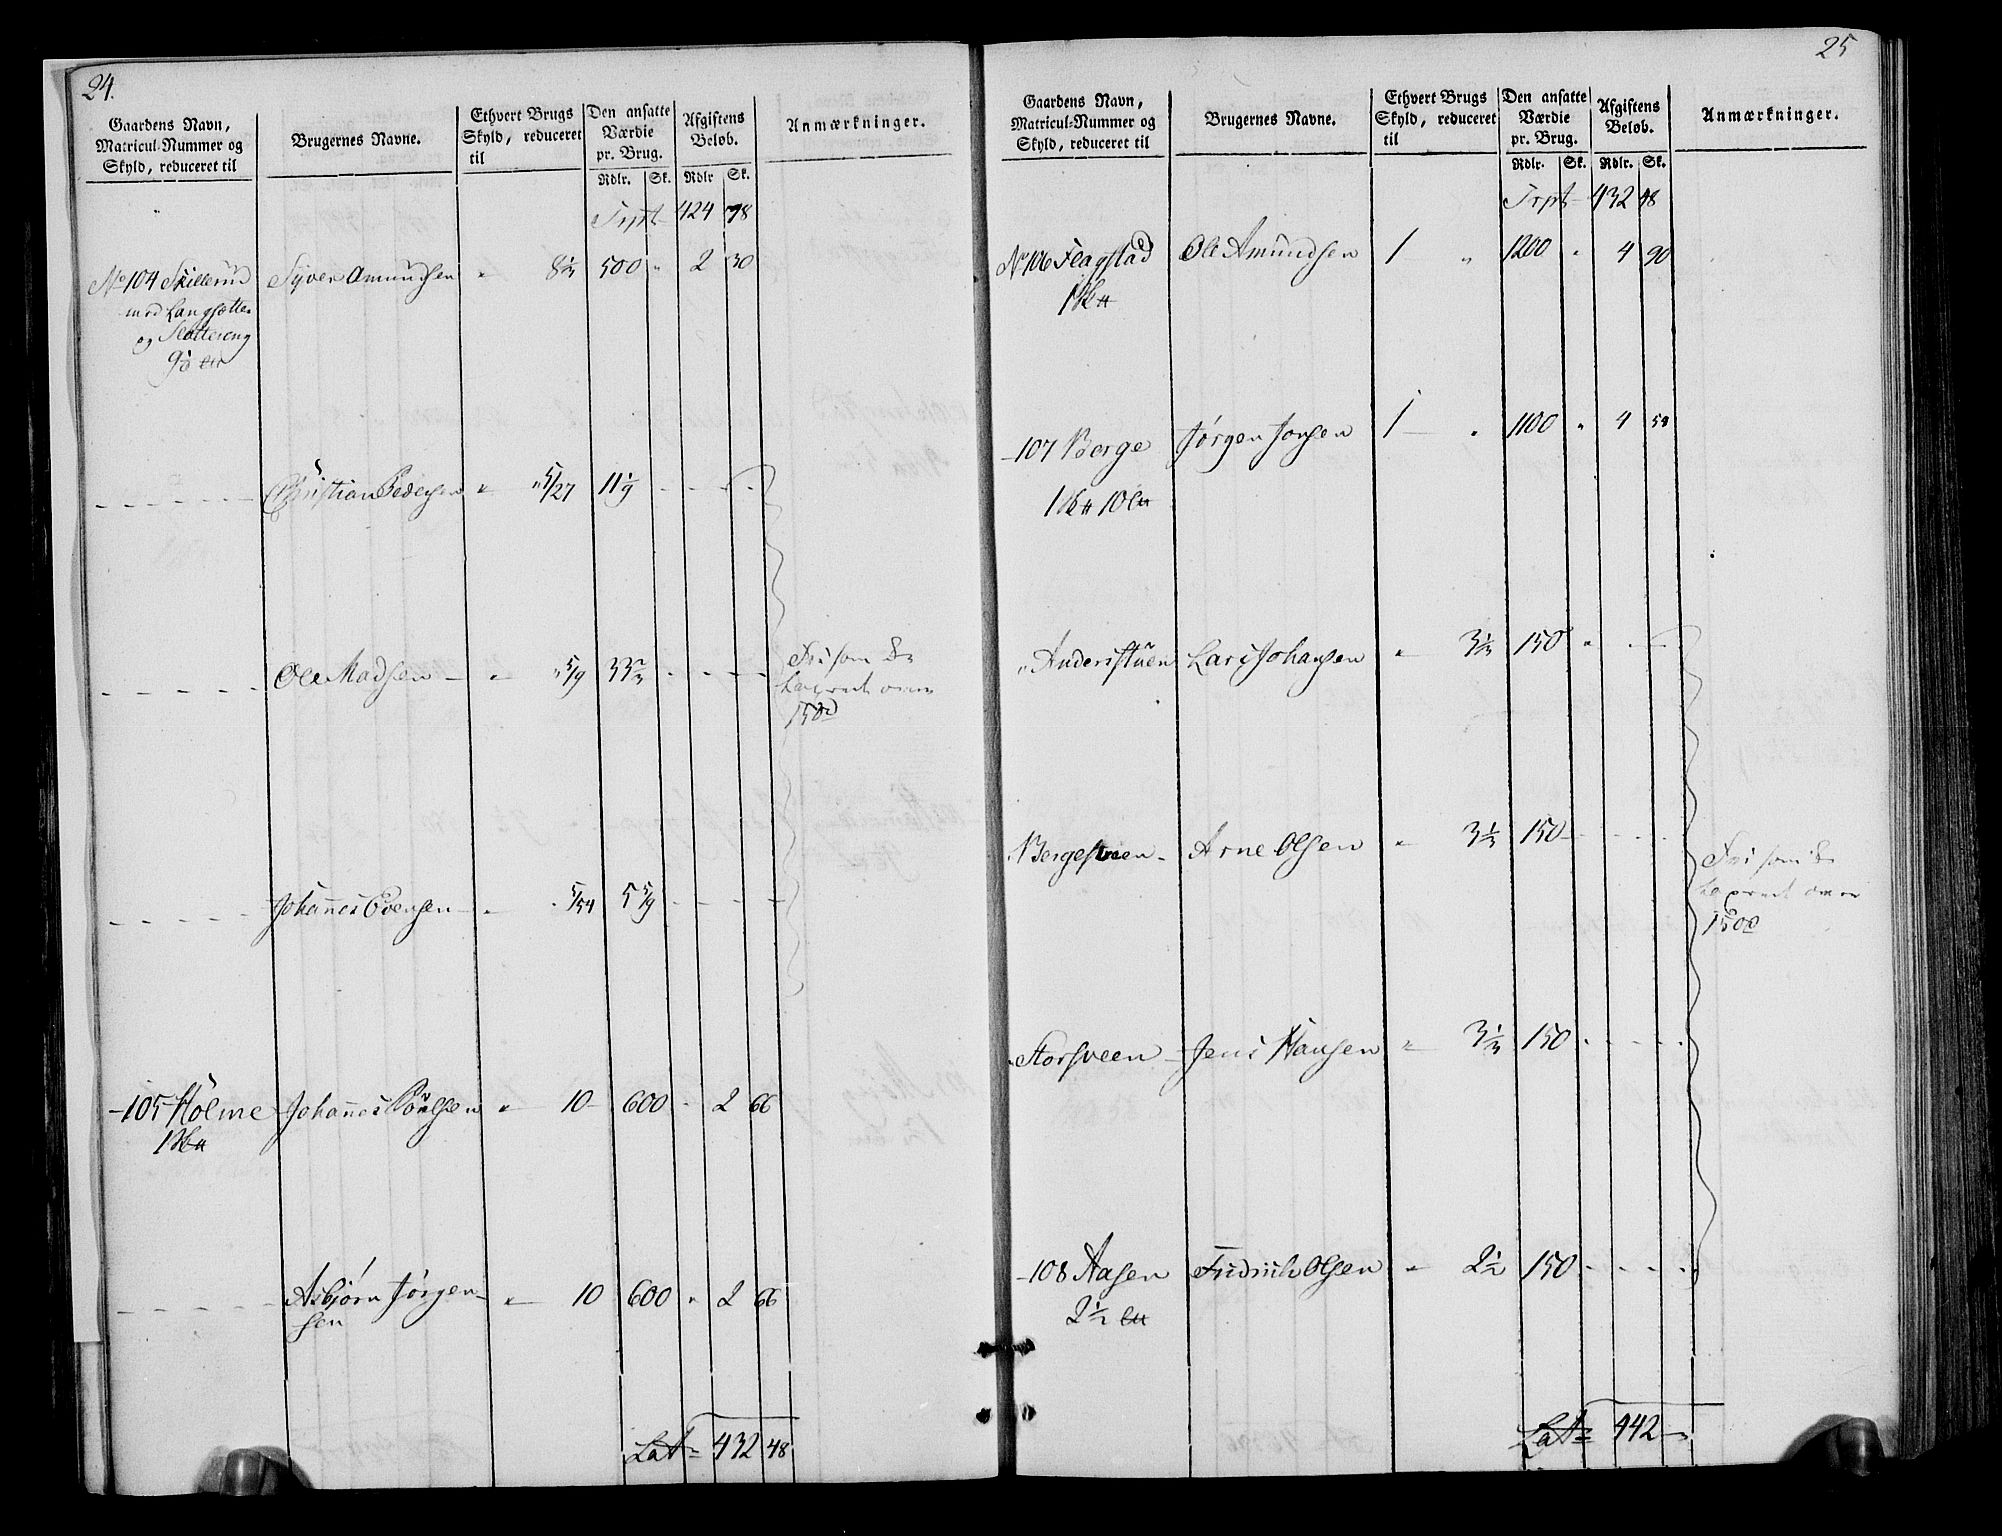 24.
Gaardens Navn, Matricul-Nummer og Skyld, reduceret til
Brugernes Navne.
Ethvert Brugs Skyld, reduceret til
Den ansatte Værdie pr. Brug.
Rdlr. Sk.
Afgiftens Beløb.
Rdlr Sk.
Anmærkninger.
Trpt 424 78
No 104 Skillerud Syver Amundsen " 8 1/3 500 " 2 30
med Langsætte
og Slottereng
Christian Pedersen " " 5/27 11 1/9 - - -
Ole Madsen - " " 5/9 33 2/3 - - - - Fri som
over
150
Johannes Evensen - " 5/54 5 5/9 - - - -
- 105 Holme Johannes Povelsen " 10 - 600 - 2 66
Asbjørn Jørgen- " 10 600 " 2 66
sen
Lat 432 48
25
Gaardens Navn, Matricul-Nummer og Skyld, reduceret til
Brugernes Navne.
Ethvert Brugs Skyld, reduceret til
Den ansatte Værdie pr. Brug.
Rdlr. Sk.
Afgiftens Beløb.
Rdlr. Sk.
Anmærkninger.
Trpt 432 48
No 106 Flagstad Ole Amundsen 1 " 1200 " 4 90
- 107 Berge Jørgen Jonsen 1 - " 1100 " 4 54
" Anderistuen Lars Johansen " 3 1/3 150 " - -
" Bergesveen - Arne Olsen " 3 1/3 150 - - - -
Fri som
over
150
" Storsveen - Jens Hansen " 3 1/3 150 - - - -
- 108 Aasen Fridrich Olsen " 2 1/2 150 - - - -
2 1/2
Lat 442 -